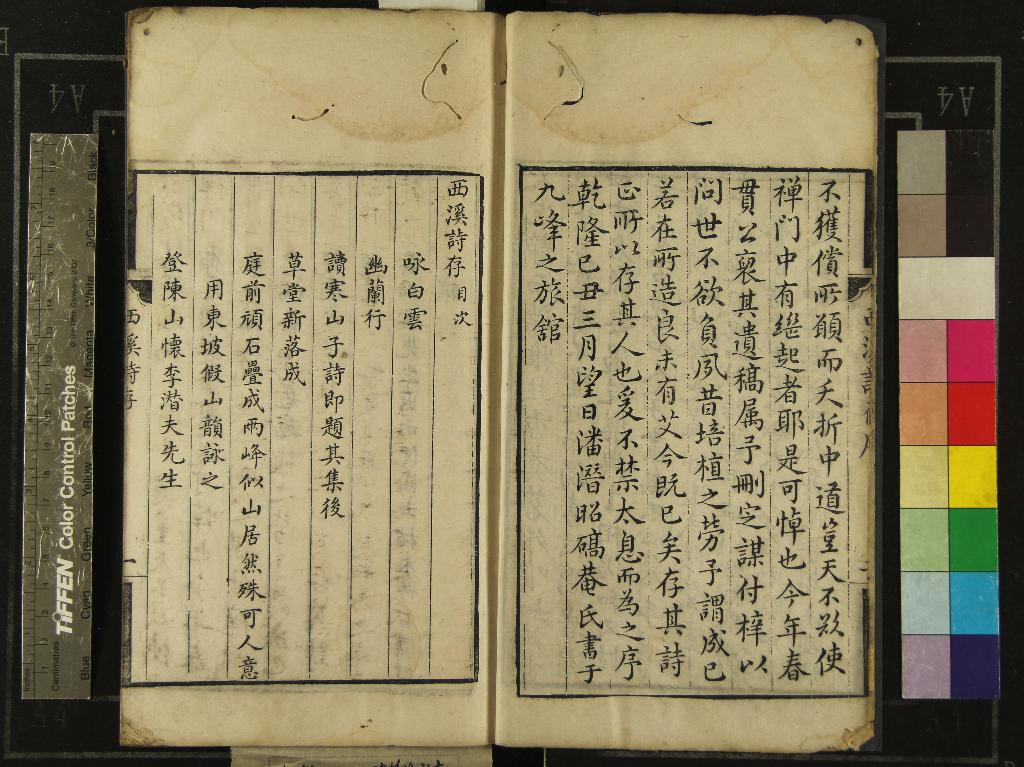 不獲償所願而夭折中道豈天不欲使
禅门中有繼起者耶是可悼也今年春
貫公裒其遺稿属予刪定謀付梓以
问世不欲負夙昔培植之勞予謂成已
若在所造良未有艾今既已矣存其詩
正所以存其人也爰不禁太息而為之序
乾隆己丑三月望日潘潛昭碻菴氏書于
九峰之旅舘
西溪詩存目次
咏白雲
幽蘭行
讀寒山子詩即題其集後
草堂新落成
庭前頑石疊成兩峰似山居然殊可人意
用東坡假山韻詠之
登陳山懷李潛夫先生
西溪詩存
一
TIFFEN Color Control Patches
Blue
Cyan
Green
Yellow
Red
Magenta
White
3/Color
Black
Inches
Centimetres
A4
A4
A4
A4